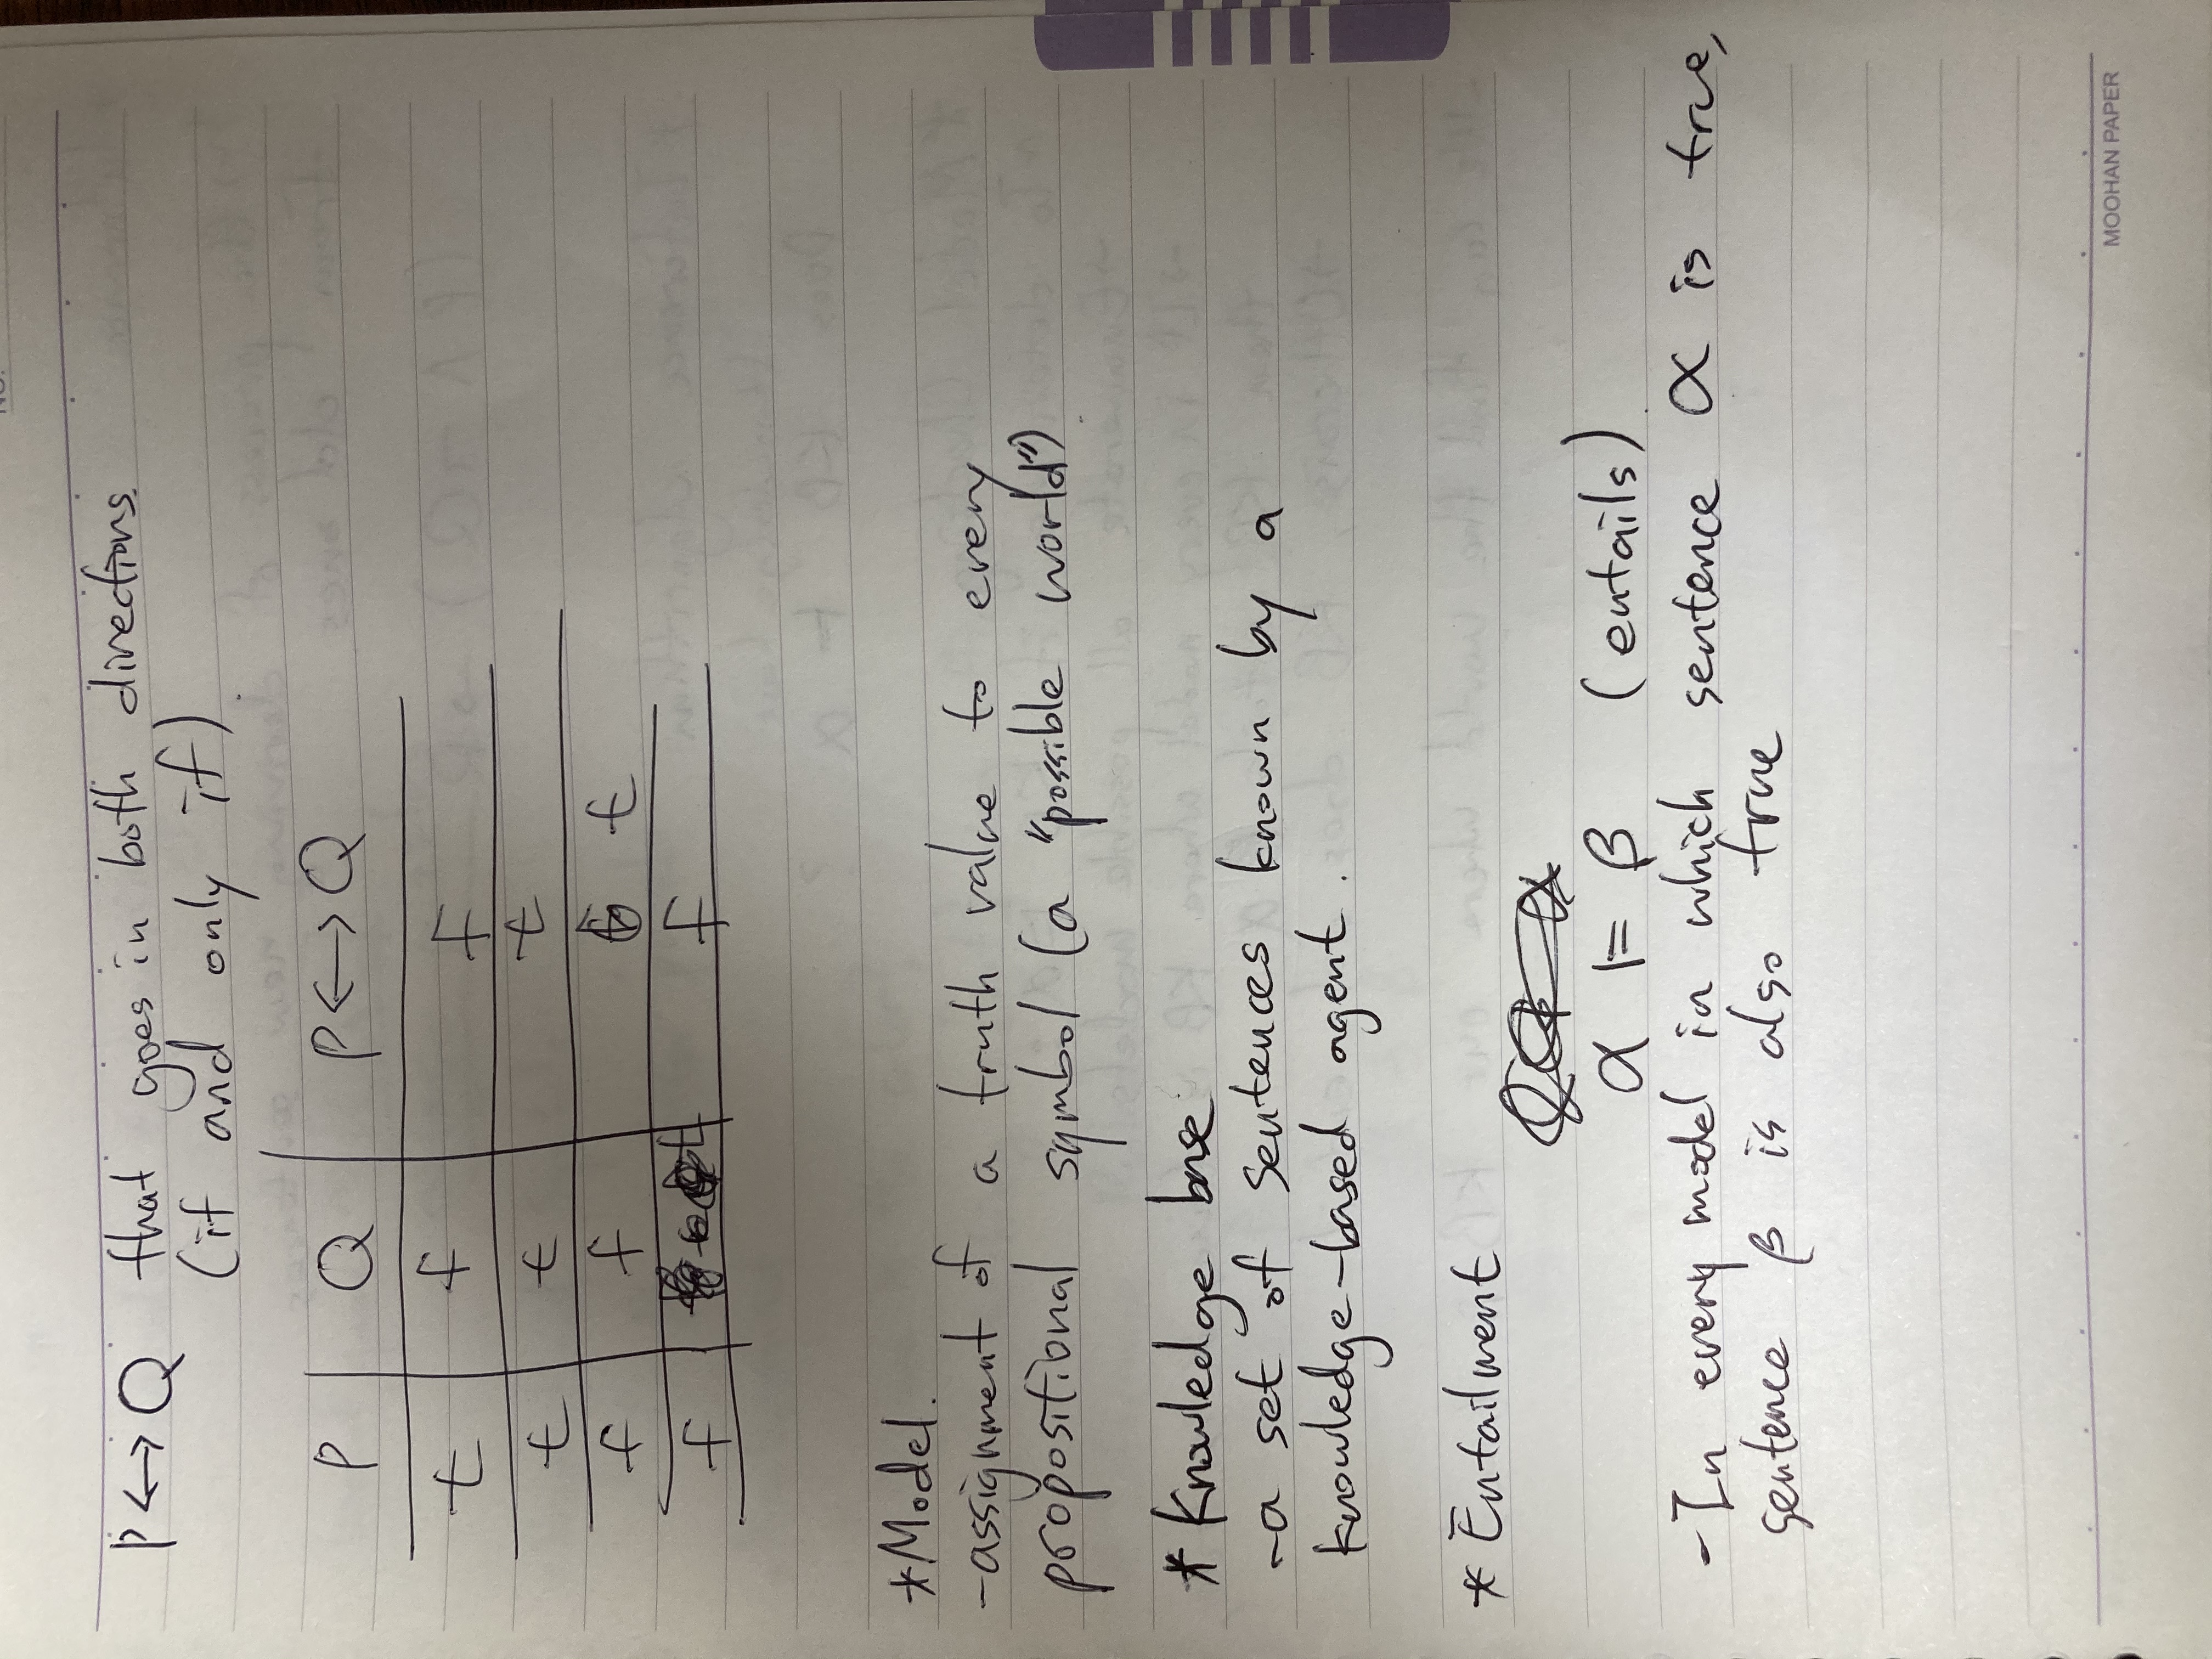 P ↔ Q that goes in both directions.
(if and only if)
P Q P ↔ Q
t f f
t t t
f f t
f t f
*Model.
-assignment of a truth value to every
propositional symbol (a "possible world")
* Knowledge base
-a set of sentences known by a
knowledge-based agent.
* Entailment
α |= β (entails)
- In every model in which sentence α is true,
sentence β is also true
MOOHAN PAPER